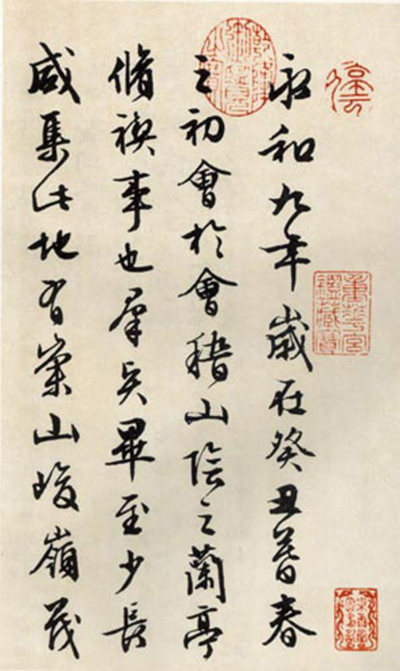 永和九年歲在癸丑暮春
之初會於會稽山陰之蘭亭
脩禊事也羣賢畢至少長
咸集此地有崇山峻嶺茂
重華宮
鑑藏寶